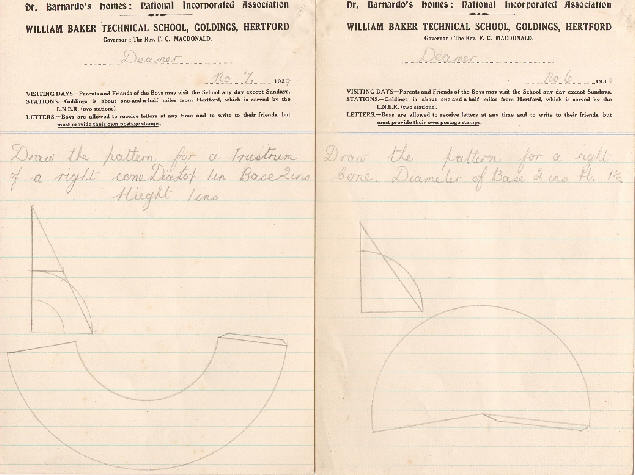 Dr. Barnardo's Homes: National Incorporated Association
WILLIAM BAKER TECHNICAL SCHOOL, GOLDINGS, HERTFORD
Governor: The Rev. F. C. MACDONALD.
Deamer
No 7. 192
VISITING DAYS—Parents and Friends of the Boys may visit the School any day except Sundays.
STATIONS—Goldings is about one-and-a-half miles from Hertford, which is served by the
L.N.E.R. (two stations).
LETTERS—Boys are allowed to receive letters at any time and to write to their friends, but
must provide their own postage stamps.
Draw the pattern for a Frustrum
of a right cone Dia of 1in Base 2ins
Hieght 1ins
Dr. Barnardo's Homes: National Incorporated Association
WILLIAM BAKER TECHNICAL SCHOOL, GOLDINGS, HERTFORD
Governor: The Rev. F. C. MACDONALD.
Deamer
No 6. 192
VISITING DAYS—Parents and Friends of the Boys may visit the School any day except Sundays.
STATIONS—Goldings is about one-and-a-half miles from Hertford, which is served by the
L.N.E.R. (two stations).
LETTERS—Boys are allowed to receive letters at any time and to write to their friends, but
must provide their own postage stamps.
Draw the pattern for a right
cone Diameter of Base 2 ins Ht.